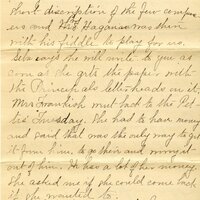 short discription of the few compos-
ers and
with his fiddle to play for us.
she will write to you as
soon as she gets the paper with
the Principals letterheads on it.
Mrs went back to the
Tuesday. She had to have money
and said that was the only way to get
it from him, to go there and worry it
out of him. He has a lot of her money.
She asked me if she could come back
if she wanted to